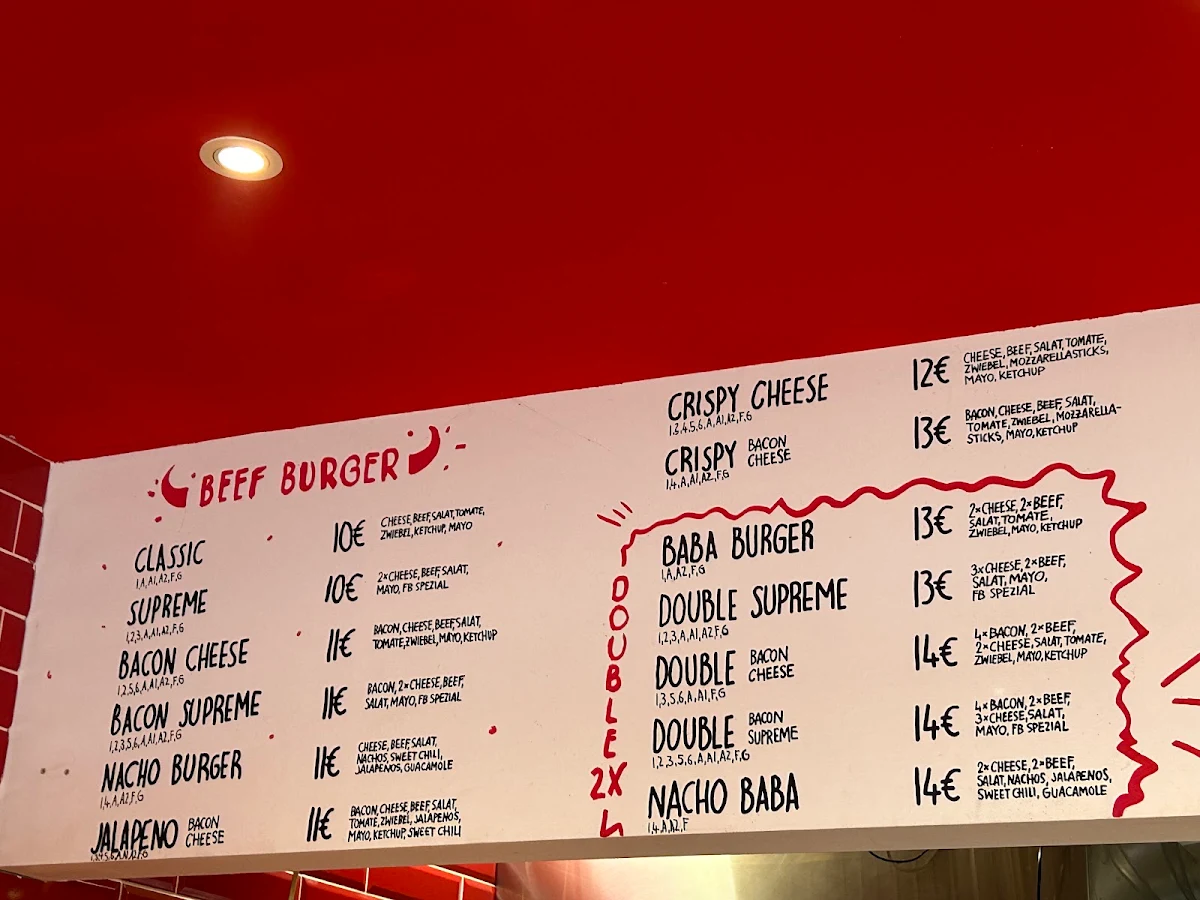 BEEF BURGER
CLASSIC 10€ CHEESE, BEEF, SALAT, TOMATE,
ZWIEBEL, KETCHUP, MAYO
1,A,A1,A2,F,G
SUPREME 10€ 2×CHEESE, BEEF, SALAT,
MAYO, FB SPEZIAL
1,2,3,A,A1,A2,F,G
BACON CHEESE 11€ BACON, CHEESE, BEEF, SALAT,
TOMATE, ZWIEBEL, MAYO, KETCHUP
1,2,5,6,A,A1,A2,F,G
BACON SUPREME 11€ BACON, 2×CHEESE, BEEF,
SALAT, MAYO, FB SPEZIAL
1,2,3,5,6,A,A1,A2,F,G
NACHO BURGER 11€ CHEESE, BEEF, SALAT,
NACHOS, SWEET CHILI,
JALAPENOS, GUACAMOLE
1,4,A,A2,F,G
JALAPENO BACON
CHEESE 11€ BACON, CHEESE, BEEF, SALAT,
TOMATE, ZWIEBEL, JALAPENOS,
MAYO, KETCHUP, SWEET CHILI
CRISPY CHEESE 12€ CHEESE, BEEF, SALAT, TOMATE,
ZWIEBEL, MOZZARELLASTICKS,
MAYO, KETCHUP
1,3,4,5,6,A,A1,A2,F,G
CRISPY BACON
CHEESE 13€ BACON, CHEESE, BEEF, SALAT,
TOMATE, ZWIEBEL, MOZZARELLA-
STICKS, MAYO, KETCHUP
1,4,A,A1,A2,F,G
DOUBLE 2X
BABA BURGER 13€ 2×CHEESE, 2×BEEF,
SALAT, TOMATE,
ZWIEBEL, MAYO, KETCHUP
1,A,A2,F,G
DOUBLE SUPREME 13€ 3×CHEESE, 2×BEEF,
SALAT, MAYO,
FB SPEZIAL
1,2,3,A,A1,A2,F,G
DOUBLE BACON
CHEESE 14€ 4×BACON, 2×BEEF,
2×CHEESE, SALAT, TOMATE,
ZWIEBEL, MAYO, KETCHUP
1,3,5,6,A,A1,F,G
DOUBLE BACON
SUPREME 14€ 4×BACON, 2×BEEF,
3×CHEESE, SALAT,
MAYO, FB SPEZIAL
1,2,3,5,6,A,A1,A2,F,G
NACHO BABA 14€ 2×CHEESE, 2×BEEF,
SALAT, NACHOS, JALAPENOS,
SWEET CHILI, GUACAMOLE
1,4,A,A2,F